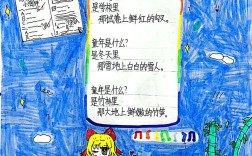 是学校里
那试卷上鲜红的勾叉。
童年是什么?
是冬天里
那雪地上白白的雪人。
童年是什么?
是竹林里
那大地上鲜嫩的竹笋。